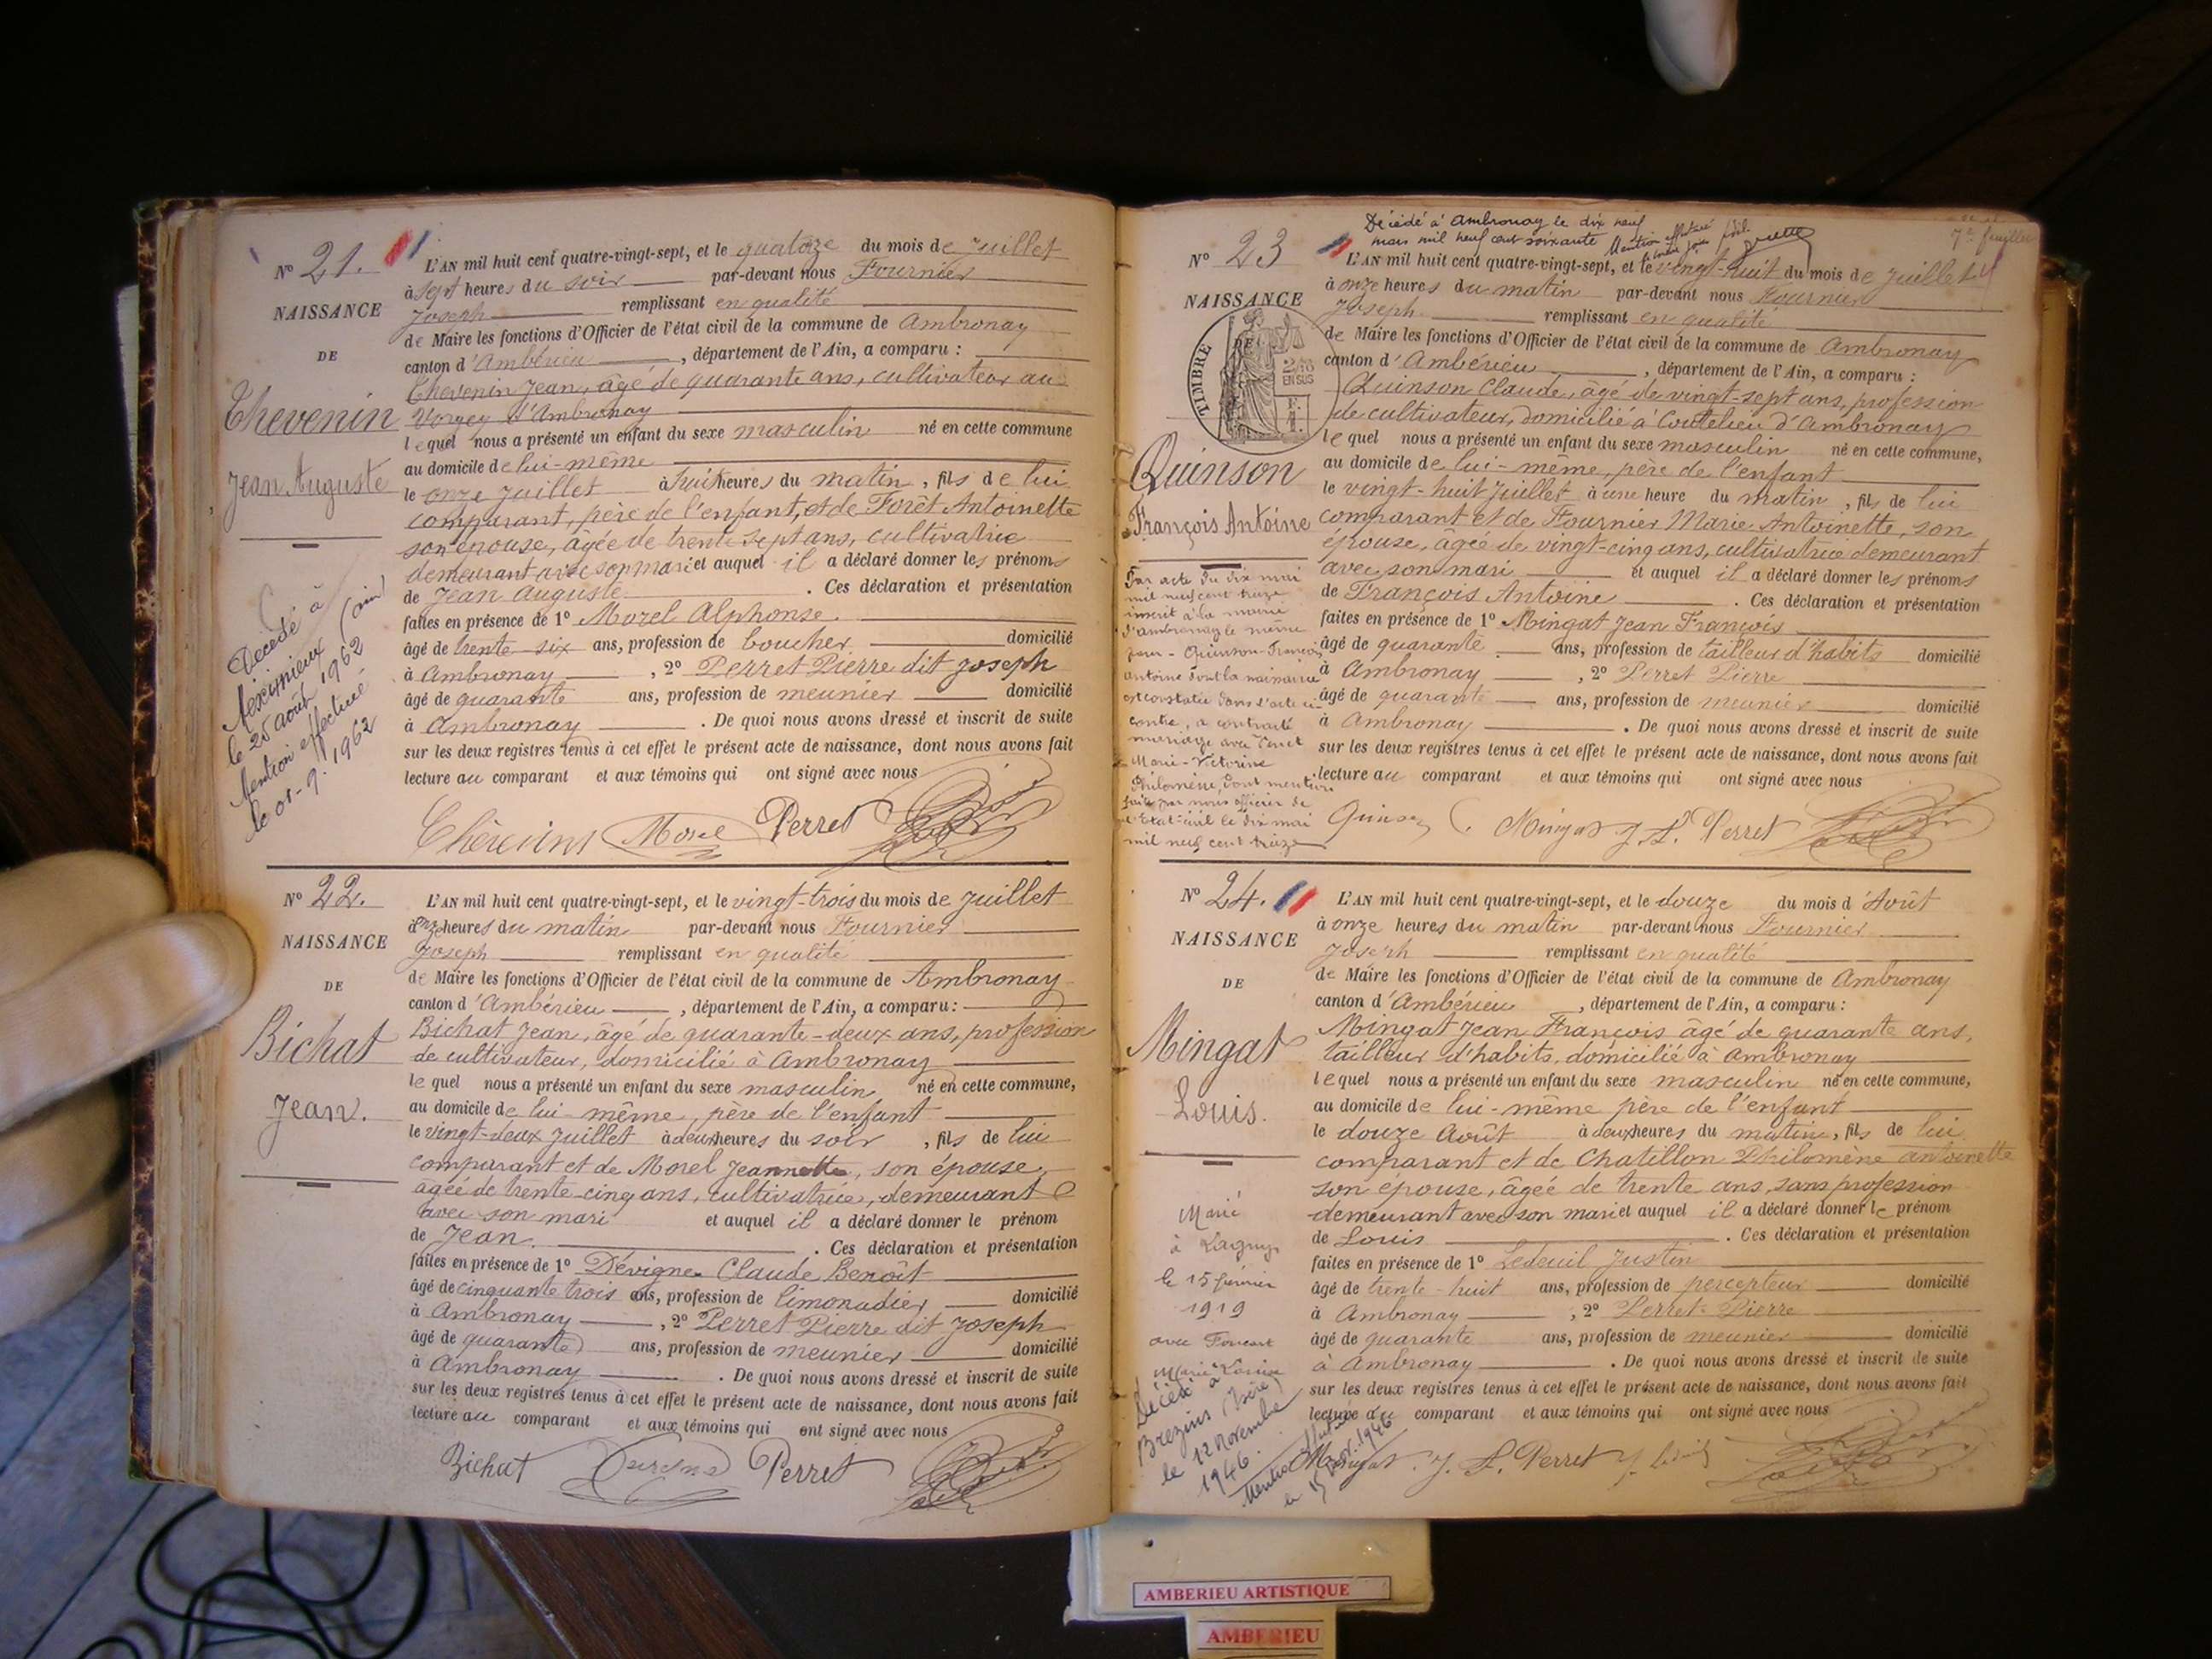 N° 21.
NAISSANCE
DE
Thevenin
Jean Auguste
Décédé à
Meximieux (ain)
le 25 août 1962
Mention effectué
le 01-9-1962
L'AN mil huit cent quatre-vingt-sept, et le quatorze du mois de Juillet
à sept heures du soir par-devant nous Fournier
Joseph remplissant en qualité
de Maire les fonctions d'Officier de l'état civil de la commune de Ambronay
canton d'Ambérieu, département de l'Ain, a comparu :
Thevenin Jean, âgé de quarante ans, cultivateur au
Vorgey d'Ambronay
lequel nous a présenté un enfant du sexe masculin né en cette commune
au domicile de lui-même
le onze Juillet à huit heures du matin, fils de lui
comparant, père de l'enfant, et de Forêt Antoinette
son épouse, âgée de trente sept ans, cultivatrice
demeurant avec son mari et auquel il a déclaré donner les prénoms
de Jean Auguste. Ces déclaration et présentation
faites en présence de 1° Morel Alphonse
âgé de trente-six ans, profession de boucher domicilié
à Ambronay, 2° Perret Pierre dit Joseph
âgé de quarante ans, profession de meunier domicilié
à Ambronay. De quoi nous avons dressé et inscrit de suite
sur les deux registres tenus à cet effet le présent acte de naissance, dont nous avons fait
lecture au comparant et aux témoins qui ont signé avec nous
Morel Perret
N° 22.
NAISSANCE
DE
Bichat
Jean.
L'AN mil huit cent quatre-vingt-sept, et le vingt-trois du mois de Juillet
à onze heures du matin par-devant nous Fournier
Joseph remplissant en qualité
de Maire les fonctions d'Officier de l'état civil de la commune de Ambronay
canton d'Ambérieu, département de l'Ain, a comparu :
Bichat Jean, âgé de quarante-deux ans, profession
de cultivateur, domicilié à Ambronay
lequel nous a présenté un enfant du sexe masculin né en cette commune,
au domicile de lui-même, père de l'enfant
le vingt-deux Juillet à deux heures du soir, fils de lui
comparant et de Morel Jeannette, son épouse,
âgée de trente-cinq ans, cultivatrice, demeurant
avec son mari et auquel il a déclaré donner le prénom
de Jean. Ces déclaration et présentation
faites en présence de 1° Dévigne Claude Benoît
âgé de cinquante trois ans, profession de limonadier domicilié
à Ambronay, 2° Perret Pierre dit Joseph
âgé de quarante ans, profession de meunier domicilié
à Ambronay. De quoi nous avons dressé et inscrit de suite
sur les deux registres tenus à cet effet le présent acte de naissance, dont nous avons fait
lecture au comparant et aux témoins qui ont signé avec nous
Bichat Perret
7e feuillet
Décédé à Ambronay le dix neuf
mars mil neuf cent soixante
N° 23
NAISSANCE
DE
TIMBRE
2/10
EN SUS
Quinson
François Antoine
Par acte du dix mai
mil neuf cent treize
inscrit à la mairie
d'ambronay le même
jour - Quinson François
Antoine dont la naissance
est constatée dans l'acte ci-
contre, a contracté
mariage avec
Marie-Victorine
Philomène, dont mention
faite par nous officier de
l'Etat-civil le dix mai
mil neuf cent treize
L'AN mil huit cent quatre-vingt-sept, et le vingt-huit du mois de Juillet
à onze heures du matin par-devant nous Fournier
Joseph remplissant en qualité
de Maire les fonctions d'Officier de l'état civil de la commune de Ambronay
canton d'Ambérieu, département de l'Ain, a comparu :
Quinson Claude, âgé de vingt-sept ans, profession
de cultivateur, domicilié à Coutelieu d'Ambronay
lequel nous a présenté un enfant du sexe masculin né en cette commune,
au domicile de lui-même, père de l'enfant
le vingt-huit Juillet à une heure du matin, fils de lui
comparant et de Fournier Marie Antoinette, son
épouse, âgée de vingt-cinq ans, cultivatrice demeurant
avec son mari et auquel il a déclaré donner les prénoms
de François Antoine. Ces déclaration et présentation
faites en présence de 1° Mingat Jean François
âgé de quarante ans, profession de tailleur d'habits domicilié
à Ambronay, 2° Perret Pierre
âgé de quarante ans, profession de meunier domicilié
à Ambronay. De quoi nous avons dressé et inscrit de suite
sur les deux registres tenus à cet effet le présent acte de naissance, dont nous avons fait
lecture au comparant et aux témoins qui ont signé avec nous
Quinson C. Mingat J. P. Perret
N° 24.
NAISSANCE
DE
Mingat
Louis.
Marié
à Lagnys
le 15 février
1919
avec
Décédé à
Brezins (Isère)
le 12 Novembre
1946.
L'AN mil huit cent quatre-vingt-sept, et le douze du mois d'Août
à onze heures du matin par-devant nous Fournier
Joseph remplissant en qualité
de Maire les fonctions d'Officier de l'état civil de la commune de Ambronay
canton d'Ambérieu, département de l'Ain, a comparu :
Mingat Jean François âgé de quarante ans,
tailleur d'habits, domicilié à Ambronay
lequel nous a présenté un enfant du sexe masculin né en cette commune,
au domicile de lui-même père de l'enfant
le douze Août à deux heures du matin, fils de lui
comparant et de Chatillon Philomène Antoinette
son épouse, âgée de trente ans, sans profession
demeurant avec son mari et auquel il a déclaré donner le prénom
de Louis. Ces déclaration et présentation
faites en présence de 1° Ledeuil Justin
âgé de trente-huit ans, profession de percepteur domicilié
à Ambronay, 2° Perret Pierre
âgé de quarante ans, profession de meunier domicilié
à Ambronay. De quoi nous avons dressé et inscrit de suite
sur les deux registres tenus à cet effet le présent acte de naissance, dont nous avons fait
lecture au comparant et aux témoins qui ont signé avec nous
Mingat. J. P. Perret
AMBERIEU ARTISTIQUE
AMBERIEU